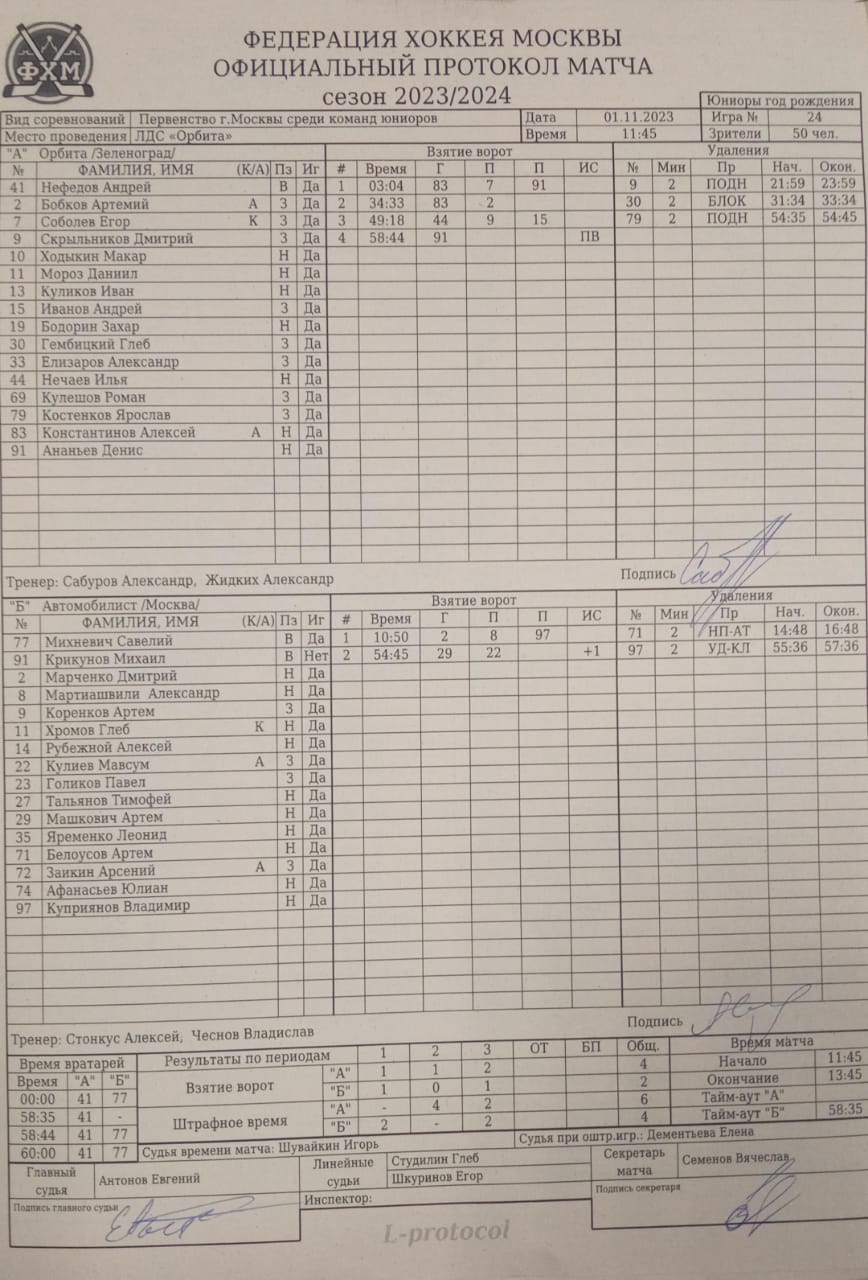 ФХМ
ФЕДЕРАЦИЯ ХОККЕЯ МОСКВЫ
ОФИЦИАЛЬНЫЙ ПРОТОКОЛ МАТЧА
сезон 2023/2024
Юниоры год рождения
Вид соревнований Первенство г.Москвы среди команд юниоров Дата 01.11.2023 Игра № 24
Место проведения ЛДС «Орбита» Время 11:45 Зрители 50 чел.
"А" Орбита /Зеленоград/ Взятие ворот Удаления
№ ФАМИЛИЯ, ИМЯ (К/А) Пз Иг # Время Г П П ИС № Мин Пр Нач. Окон.
41 Нефедов Андрей В Да 1 03:04 83 7 91 9 2 ПОДН 21:59 23:59
2 Бобков Артемий А З Да 2 34:33 83 2 30 2 БЛОК 31:34 33:34
7 Соболев Егор К З Да 3 49:18 44 9 15 79 2 ПОДН 54:35 54:45
9 Скрыльников Дмитрий З Да 4 58:44 91 ПВ
10 Ходыкин Макар Н Да
11 Мороз Даниил Н Да
13 Куликов Иван Н Да
15 Иванов Андрей З Да
19 Бодорин Захар Н Да
30 Гембицкий Глеб З Да
33 Елизаров Александр З Да
44 Нечаев Илья Н Да
69 Кулешов Роман З Да
79 Костенков Ярослав З Да
83 Константинов Алексей А Н Да
91 Ананьев Денис Н Да
Тренер: Сабуров Александр, Жидких Александр Подпись
"Б" Автомобилист /Москва/ Взятие ворот Удаления
№ ФАМИЛИЯ, ИМЯ (К/А) Пз Иг # Время Г П П ИС № Мин Пр Нач. Окон.
77 Михневич Савелий В Да 1 10:50 2 8 97 71 2 НП-АТ 14:48 16:48
91 Крикунов Михаил В Нет 2 54:45 29 22 +1 97 2 УД-КЛ 55:36 57:36
2 Марченко Дмитрий Н Да
8 Мартиашвили Александр Н Да
9 Коренков Артем З Да
11 Хромов Глеб К Н Да
14 Рубежной Алексей Н Да
22 Кулиев Мавсум А З Да
23 Голиков Павел З Да
27 Тальянов Тимофей Н Да
29 Машкович Артем Н Да
35 Яременко Леонид Н Да
71 Белоусов Артем Н Да
72 Заикин Арсений А З Да
74 Афанасьев Юлиан Н Да
97 Куприянов Владимир Н Да
Тренер: Стонкус Алексей, Чеснов Владислав Подпись
Время вратарей Результаты по периодам 1 2 3 ОТ БП Общ. Время матча
Время "А" "Б" Взятие ворот "А" 1 1 2 4 Начало 11:45
00:00 41 77 "Б" 1 0 1 2 Окончание 13:45
58:35 41 - Штрафное время "А" - 4 2 6 Тайм-аут "А"
58:44 41 77 "Б" 2 - 2 4 Тайм-аут "Б" 58:35
60:00 41 77 Судья времени матча: Шувайкин Игорь Судья при оштр.игр.: Дементьева Елена
Главный судья Антонов Евгений Линейные судьи Студилин Глеб Секретарь матча Семенов Вячеслав
Шкуринов Егор
Подпись главного судьи Инспектор: Подпись секретаря
L-protocol